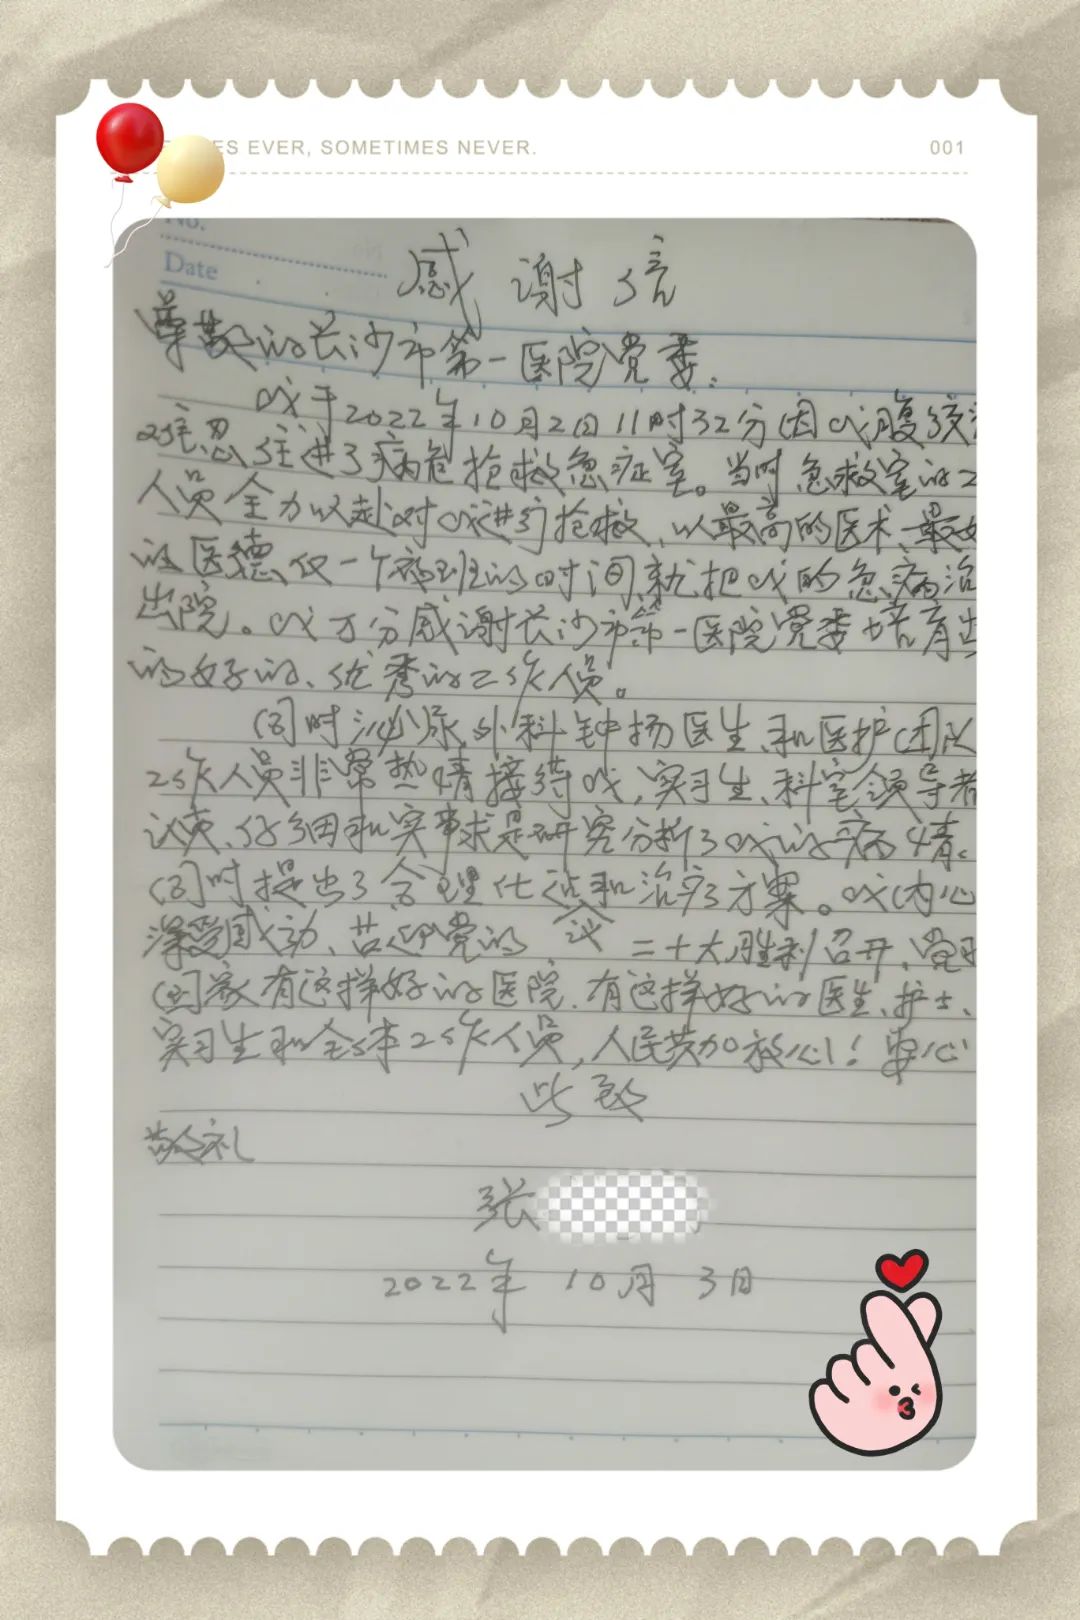 ES EVER, SOMETIMES NEVER.
001
No.
Date
感谢信
尊敬的长沙市第一医院党委:
我于2022年10月2日11时32分因我腹
住进了病危抢救急症室。当时急救室的工
人员全力以赴对我进行抢救,以最高的医术、最好
的医德仅一个夜班的时间就把我的急病治
出院。我万分感谢长沙市第一医院党委培育出
的好的、优秀的工作人员。
同时泌尿外科钟扬医生和医护团队
工作人员非常热情接待我,实习生、科室领导都
认真、仔细和实事求是研究分析了我的病情。
同时提出了合理化建议和治疗方案。我内心
深受感动、党的二十大胜利召开,党和
国家有这样好的医院.有这样好的医生、护士、
实习生和全体工作人员,人民更加放心!安心
此致
敬礼
张
2022年10月3日